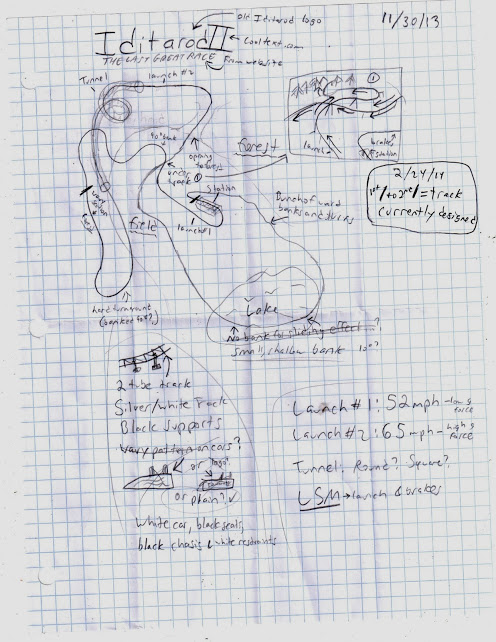 Old Iditarod logo
11/30/13
Iditarod II
Cooltext.com
THE LAST GREAT RACE
From website
Tunnel
launch #2
①
launch
brakes
station
forest
opening
to forest
under
track
①
Station
launch #1
2/24/14
track
currently designed
Bunch of weird
banks and turns
field
hard turnaround
(banked to
Lake
No bank for sliding effect
?
Small, shallow bank 10°?
2 tube track
Silver/white Track
Black supports
Vary pattern on cars?
or
logo?
or plain? ✓
White car, black seats,
black chasis & white restraints
Launch #1: 52 mph - low g
force
Launch #2: 65 mph - high g
force
Tunnel: Round? Square?
LSM → launch & brakes